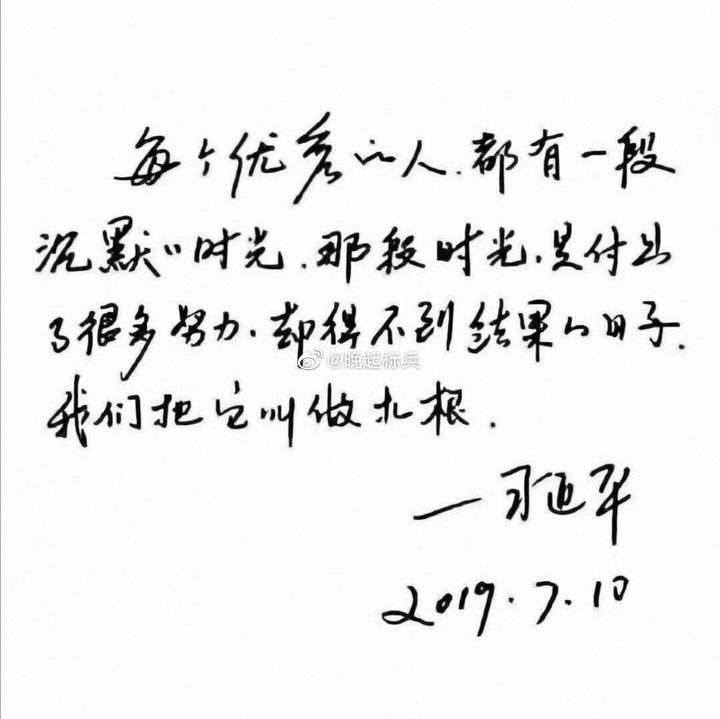 每个优秀的人.都有一段
沉默的时光.那段时光.是付出
了很多努力.却得不到结果的日子.
@晚起标兵
我们把它叫做扎根.
一习近平
2019.7.10